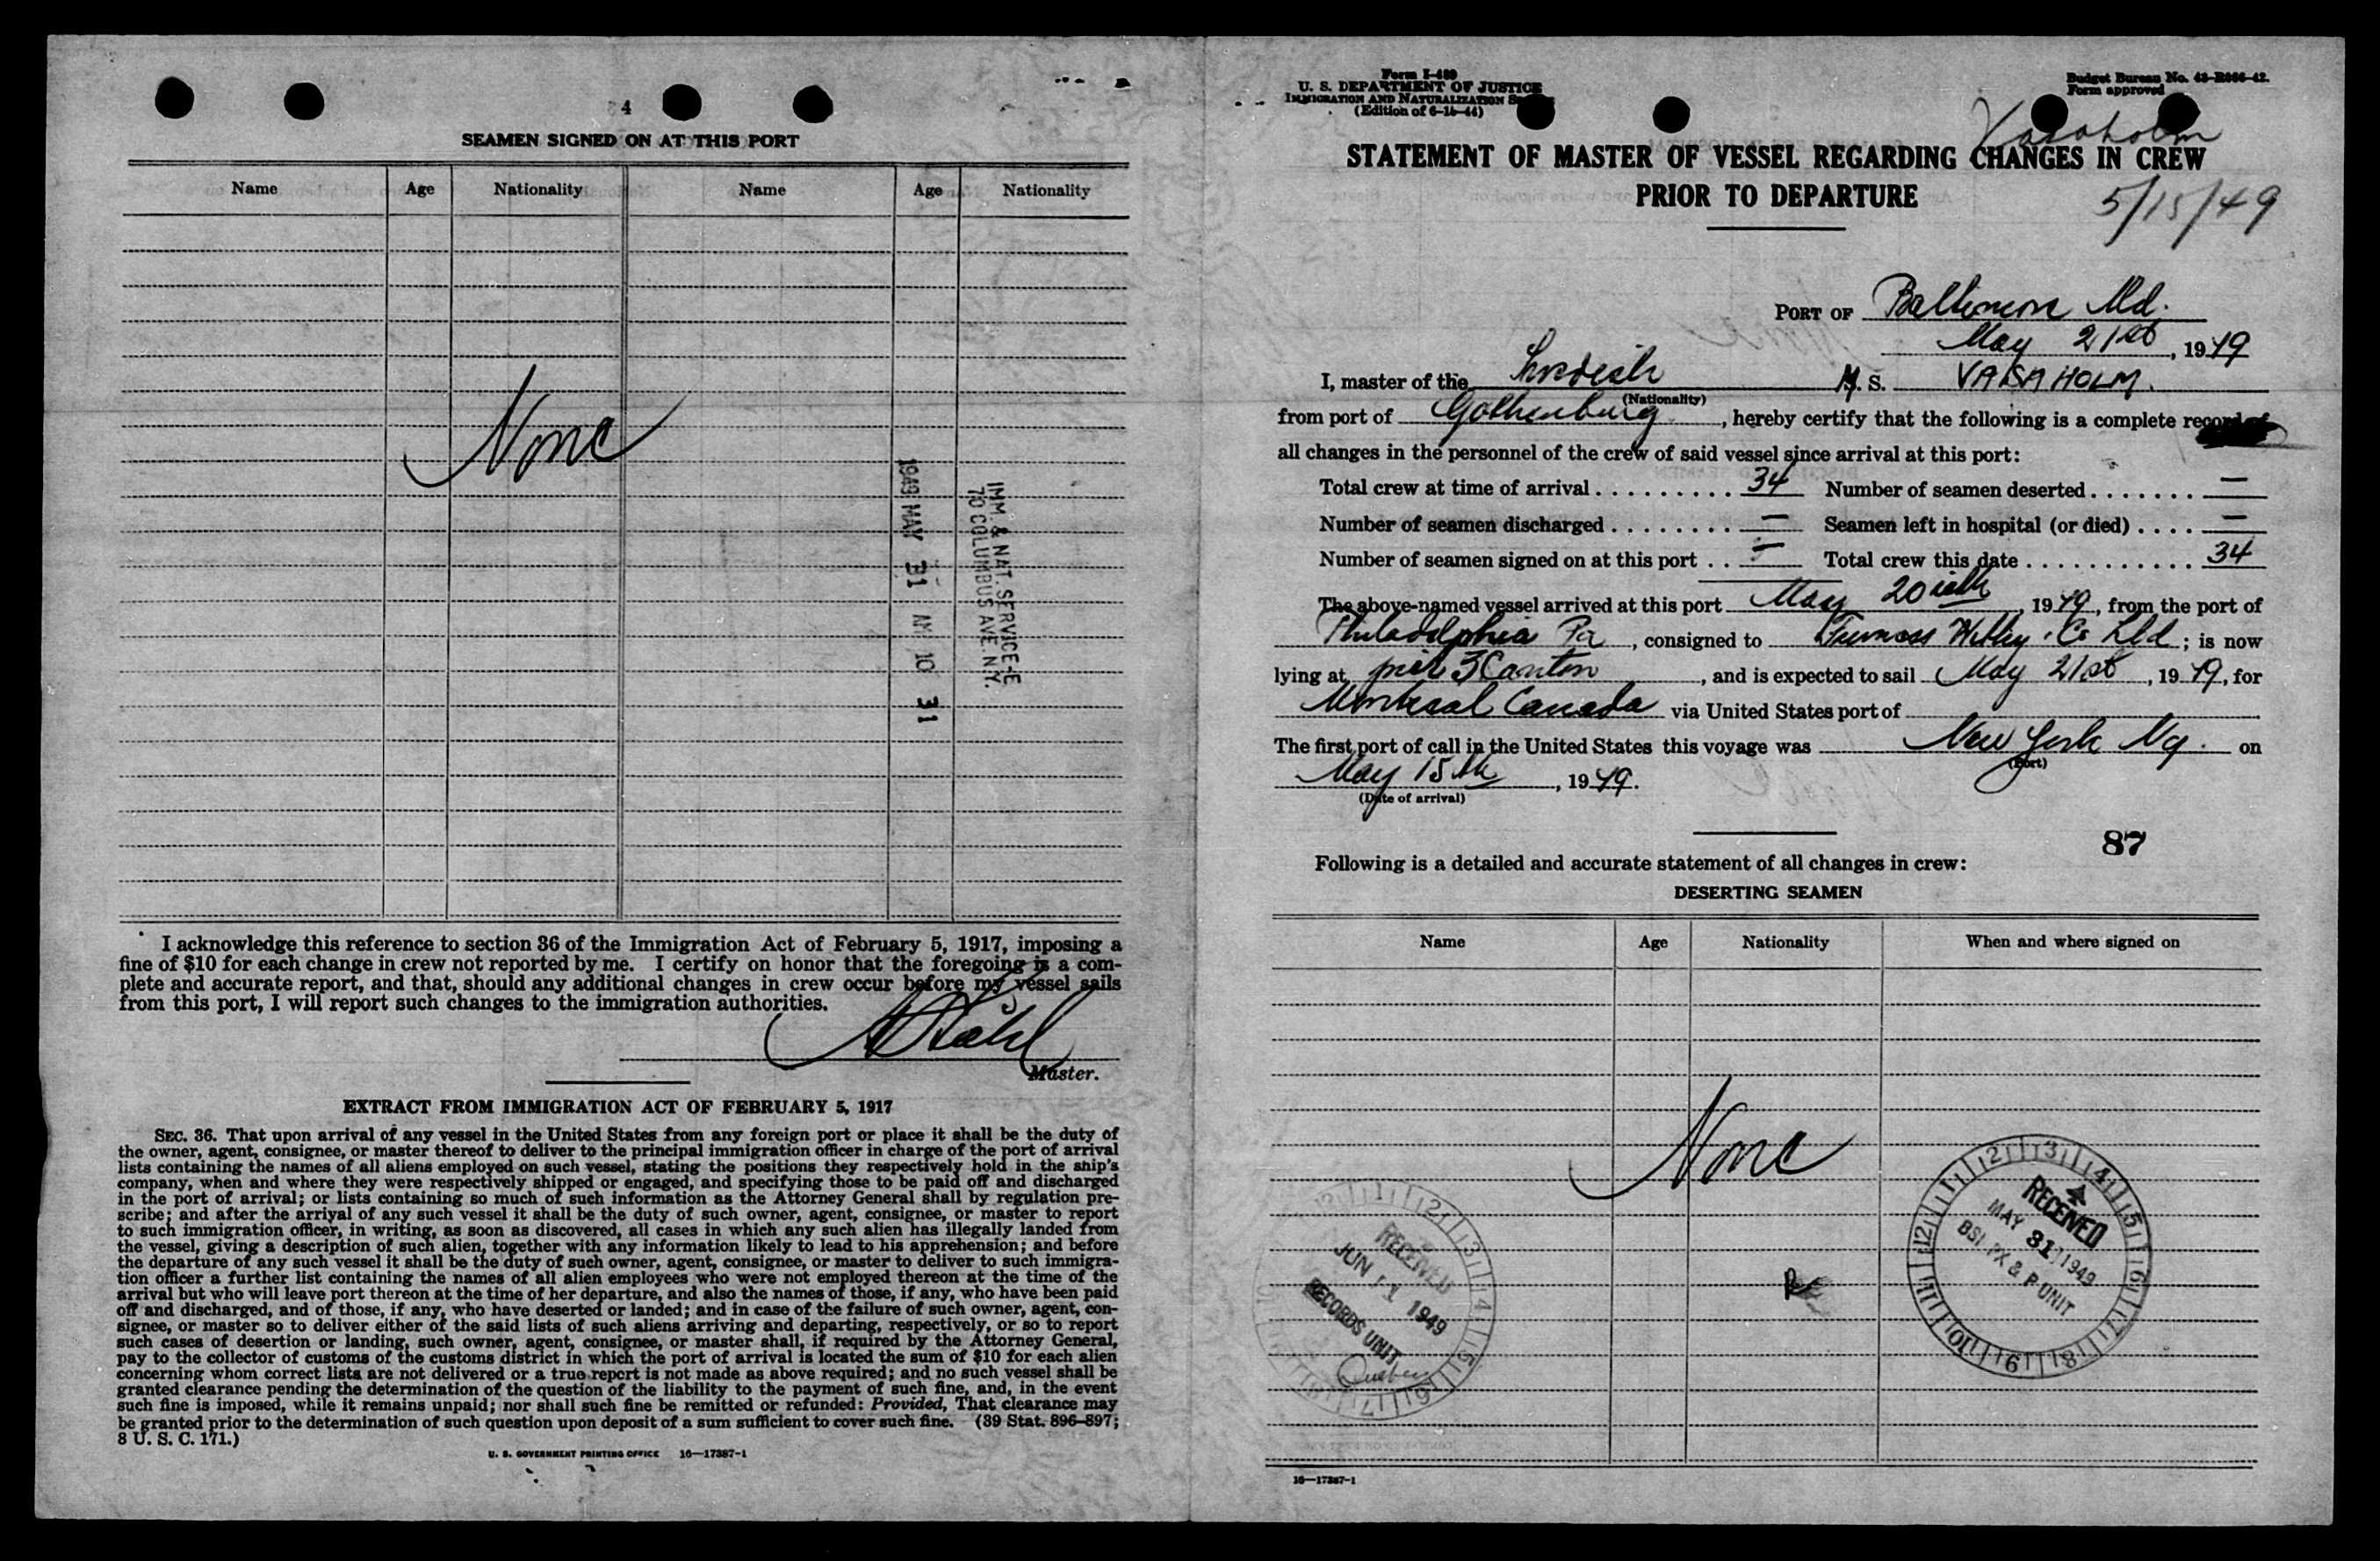 4
SEAMEN SIGNED ON AT THIS PORT
Name Age Nationality Name Age Nationality
None
1949 MAY 31 AM 10 31
IMM & NAT. SERVICE-E
70 COLUMBUS AVE. N.Y.
I acknowledge this reference to section 36 of the Immigration Act of February 5, 1917, imposing a
fine of $10 for each change in crew not reported by me. I certify on honor that the foregoing is a com-
plete and accurate report, and that, should any additional changes in crew occur before my vessel sails
from this port, I will report such changes to the immigration authorities.
Master.
EXTRACT FROM IMMIGRATION ACT OF FEBRUARY 5, 1917
SEC. 36. That upon arrival of any vessel in the United States from any foreign port or place it shall be the duty of
the owner, agent, consignee, or master thereof to deliver to the principal immigration officer in charge of the port of arrival
lists containing the names of all aliens employed on such vessel, stating the positions they respectively hold in the ship's
company, when and where they were respectively shipped or engaged, and specifying those to be paid off and discharged
in the port of arrival; or lists containing so much of such information as the Attorney General shall by regulation pre-
scribe; and after the arriyal of any such vessel it shall be the duty of such owner, agent, consignee, or master to report
to such immigration officer, in writing, as soon as discovered, all cases in which any such alien has illegally landed from
the vessel, giving a description of such alien, together with any information likely to lead to his apprehension; and before
the departure of any such vessel it shall be the duty of such owner, agent, consignee, or master to deliver to such immigra-
tion officer a further list containing the names of all alien employees who were not employed thereon at the time of the
arrival but who will leave port thereon at the time of her departure, and also the names of those, if any, who have been paid
off and discharged, and of those, if any, who have deserted or landed; and in case of the failure of such owner, agent, con-
signee, or master so to deliver either of the said lists of such aliens arriving and departing, respectively, or so to report
such cases of desertion or landing, such owner, agent, consignee, or master shall, if required by the Attorney General,
pay to the collector of customs of the customs district in which the port of arrival is located the sum of $10 for each alien
concerning whom correct lists are not delivered or a true report is not made as above required; and no such vessel shall be
granted clearance pending the determination of the question of the liability to the payment of such fine, and, in the event
such fine is imposed, while it remains unpaid; nor shall such fine be remitted or refunded: Provided, That clearance may
be granted prior to the determination of such question upon deposit of a sum sufficient to cover such fine. (39 Stat. 896–897;
8 U. S. C. 171.)
U. S. GOVERNMENT PRINTING OFFICE 16—17387-1
Form I-489
U. S. DEPARTMENT OF JUSTICE
IMMIGRATION AND NATURALIZATION
(Edition of 6-15-44)
Budget Bureau No. 43-R066-42.
Form approved
Vasaholm
STATEMENT OF MASTER OF VESSEL REGARDING CHANGES IN CREW
PRIOR TO DEPARTURE
5/15/49
PORT OF Baltimore Md.
May 21st, 1949
I, master of the Swedish M. S. VASAHOLM.
(Nationality)
from port of Gothenburg, hereby certify that the following is a complete record of
all changes in the personnel of the crew of said vessel since arrival at this port:
Total crew at time of arrival . . . . . . . . . . 34 Number of seamen deserted . . . . . . . —
Number of seamen discharged . . . . . . . . — Seamen left in hospital (or died) . . . . —
Number of seamen signed on at this port . . — Total crew this date . . . . . . . . . . . . 34
The above-named vessel arrived at this port May 20th, 1949, from the port of
Philadelphia Pa, consigned to Furness Withy & Co Ltd; is now
lying at pier 3 Canton, and is expected to sail May 21st, 1949, for
Montreal Canada via United States port of
The first port of call in the United States this voyage was New York Ny. on
(Port)
May 15th, 1949.
(Date of arrival)
87
Following is a detailed and accurate statement of all changes in crew:
DESERTING SEAMEN
Name Age Nationality When and where signed on
None
RECEIVED
MAY 31 1949
BSI PX & P UNIT
RECEIVED
JUN 1 1949
RECORDS UNIT
16—17387-1